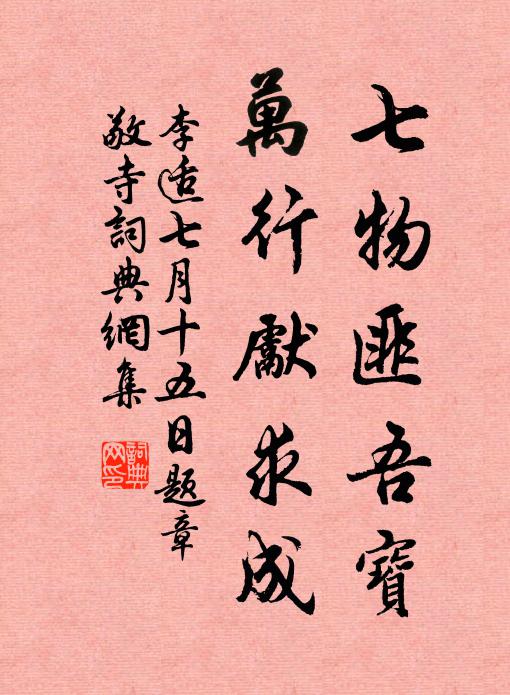 七物匪吾寶
萬行獻求成
李适七月十五日題章
敬寺詞典網集
詞典
网印